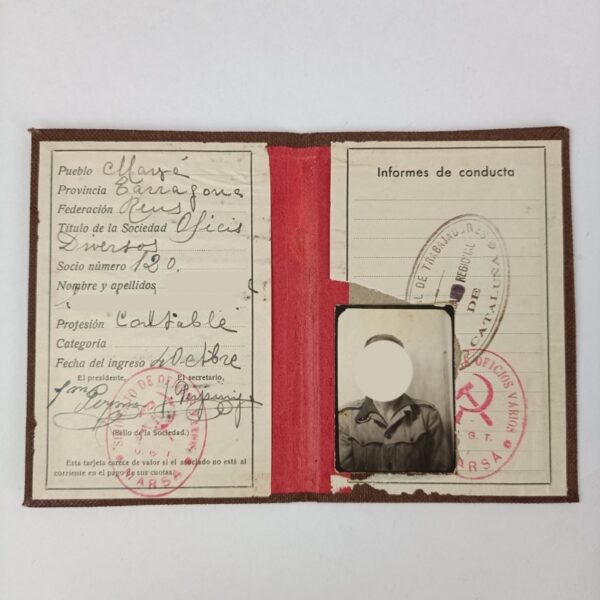 Pueblo Marsá
Provincia Tarragona
Federación Reus
Título de la Sociedad Oficis
Diversos
Socio número 120.
Nombre y apellidos
Profesión Contable
Categoría
Fecha del ingreso 4 Octbre
El presidente,
El secretario,
(Sello de la Sociedad.)
SINDICATO DE OFICIOS VARIOS
U.G.T.
MARSA
Esta tarjeta carece de valor si el asociado no está al
corriente en el pago de sus cuotas.
Informes de conducta
DE TRABAJADORES
REGIONAL
DE
CATALUÑA
OFICIOS VARIOS
G.T.
MARSA